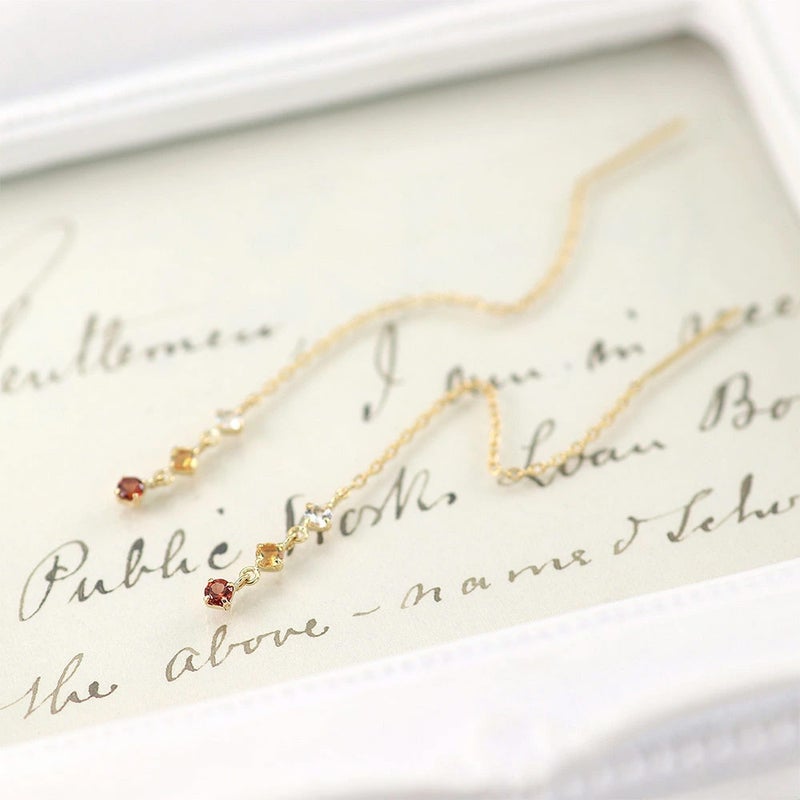 Gentlemen, I am in rece
Public Works Loan Bo
the above-named Scho